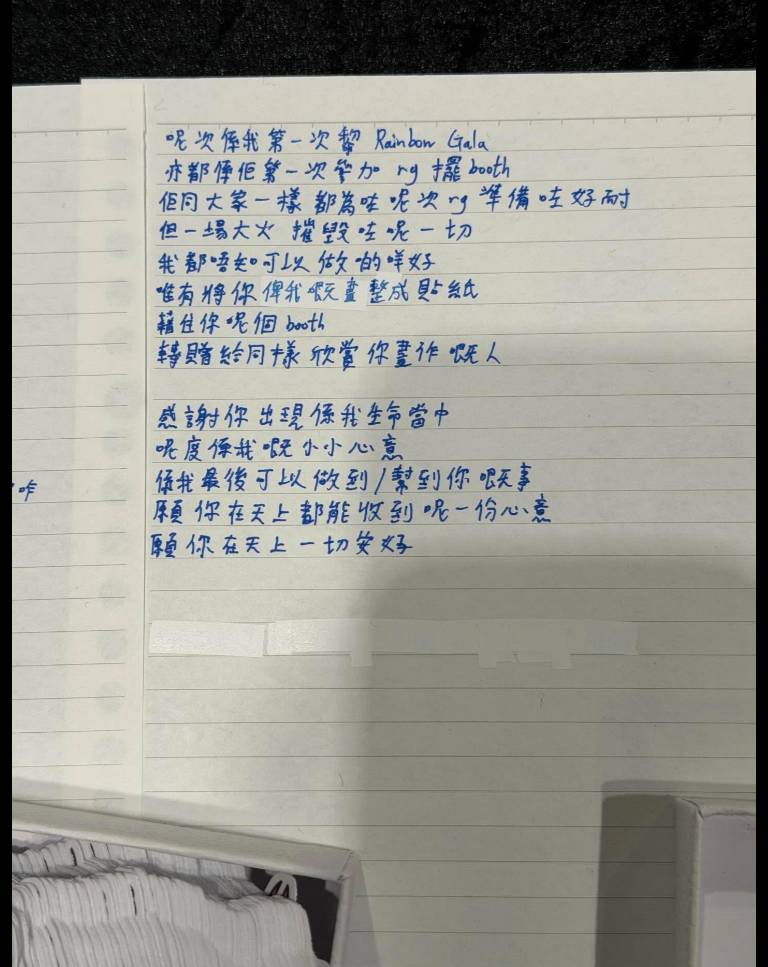 呢次係我第一次嚟 Rainbow Gala
亦都係佢第一次參加 rg 擺 booth
佢同大家一樣 都為咗呢次 rg 準備咗好耐
但一場大火 摧毀咗呢一切
我都唔知可以做啲咩好
唯有將你俾我嘅畫整成貼紙
藉住你呢個 booth
轉贈給同樣欣賞你畫作嘅人
感謝你出現係我生命當中
呢度係我嘅小小心意
係我最後可以做到/幫到你嘅事
願你在天上都能收到呢一份心意
願你在天上一切安好
咋